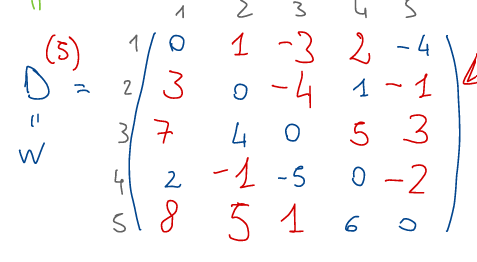 1 2 3 4 5
1 0 1 -3 2 -4
D(5) = 2 3 0 -4 1 -1
3 7 4 0 5 3
W 4 2 -1 -5 0 -2
5 8 5 1 6 0